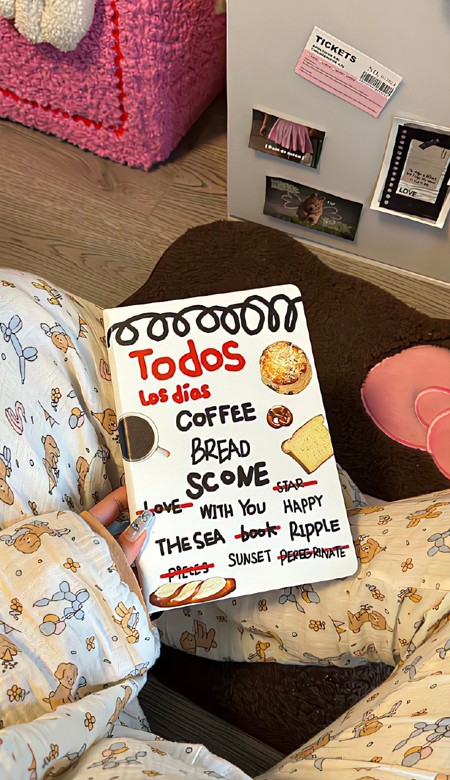 TICKETS
NO.
LOVE
Todos
Los días
COFFEE
BREAD
SCONE
STAR
LOVE WITH YOU HAPPY
THE SEA book RIPPLE
PIECES SUNSET PEREGRINATE